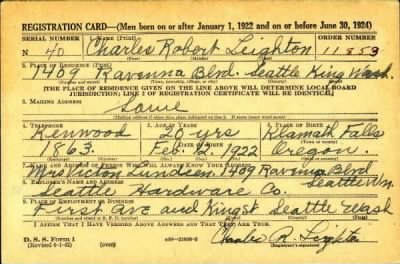 REGISTRATION CARD—(Men born on or after January 1, 1922 and on or before June 30, 1924)
SERIAL NUMBER 1. NAME (Print) ORDER NUMBER
N 40 Charles Robert Leighton 11853
(First) (Middle) (Last)
2. PLACE OF RESIDENCE (Print)
1409 Ravenna Blvd. Seattle King Wash.
(Number and street) (Town, township, village, or city) (County) (State)
[THE PLACE OF RESIDENCE GIVEN ON THE LINE ABOVE WILL DETERMINE LOCAL BOARD
JURISDICTION; LINE 2 OF REGISTRATION CERTIFICATE WILL BE IDENTICAL]
3. MAILING ADDRESS
Same
[Mailing address if other than place indicated on line 2. If same insert word same]
4. TELEPHONE 5. AGE IN YEARS 6. PLACE OF BIRTH
Kenwood 20 yrs Klamath Falls
DATE OF BIRTH
1863. Feb. 1922 Oregon.
7. NAME AND ADDRESS OF PERSON WHO WILL ALWAYS KNOW YOUR ADDRESS
Mrs Victor Lundeen 1409 Ravenna Blvd
8. EMPLOYER'S NAME AND ADDRESS Seattle Wn.
Seattle Hardware Co.
9. PLACE OF EMPLOYMENT OR BUSINESS
First Ave and King St Seattle Wash
(Number and street or R. F. D. number) (Town) (County) (State)
I AFFIRM THAT I HAVE VERIFIED ABOVE ANSWERS AND THAT THEY ARE TRUE.
D. S. S. Form 1
(Revised 6-1-42) (over) Charles R. Leighton
(Registrant's signature)